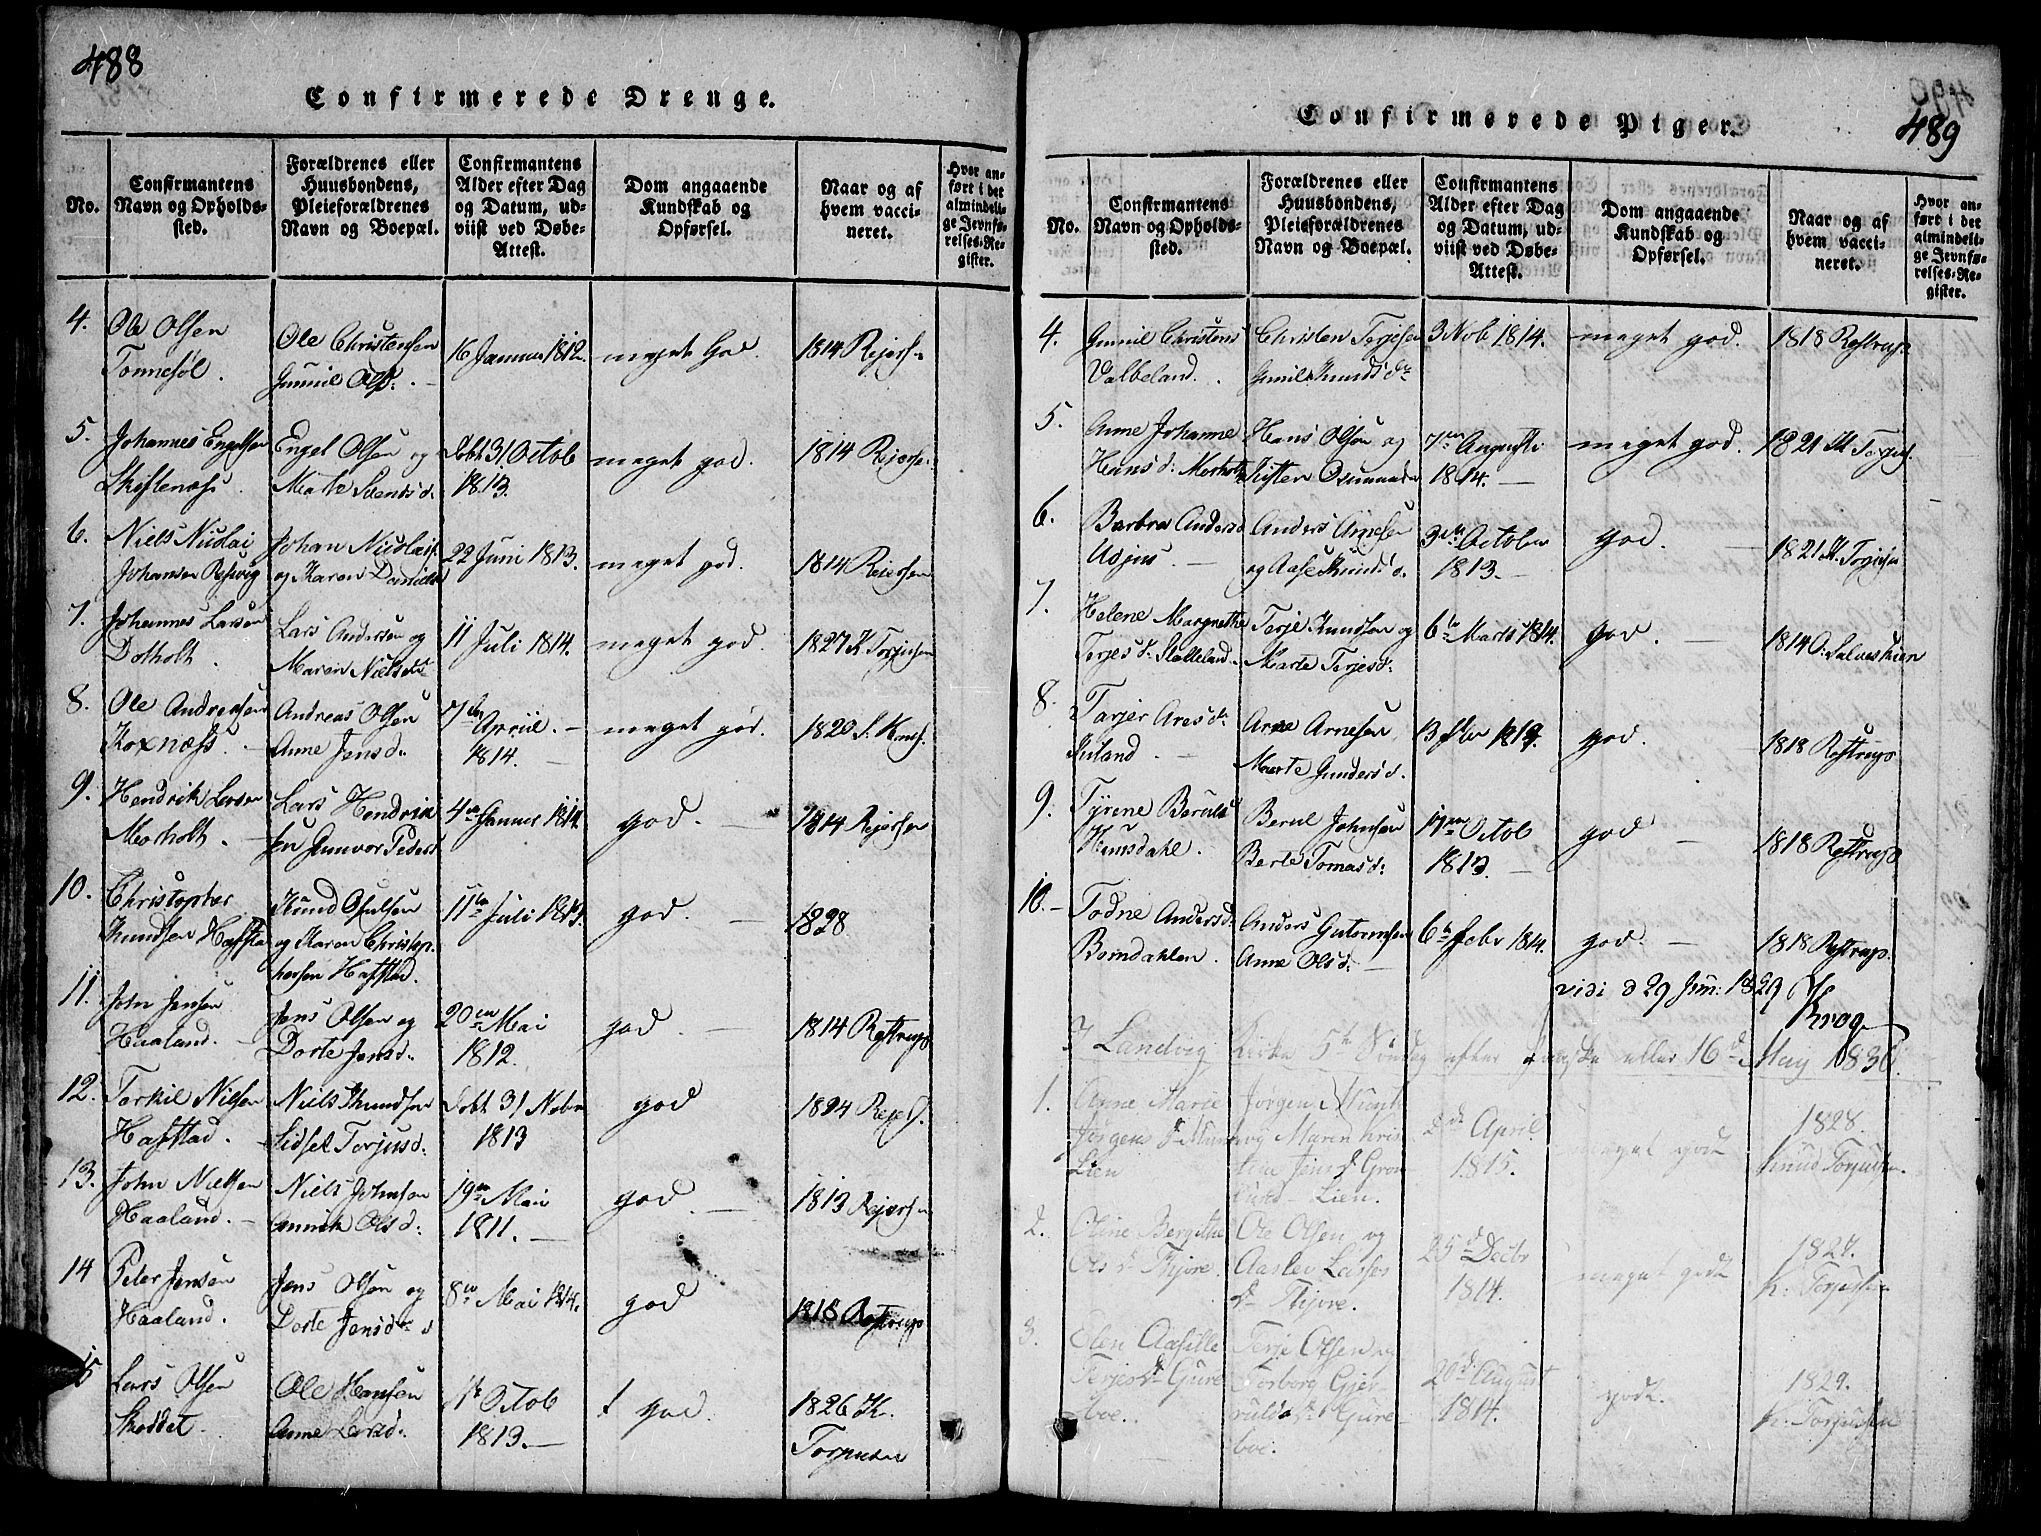 488
Confirmerede Drenge.
No.
Confirmantens
Navn og Opholds-
sted.
Forældrenes eller
Huusbondens,
Pleieforældrenes
Navn og Boepæl.
Confirmantens
Alder efter Dag
og Datum, ud-
viist ved Døbe-
Attest.
Dom angaaende
Kundskab og
Opførsel.
Naar og af
hvem vacci-
neret.
Hvor an-
ført i det
almindeli-
ge Jevnfø-
relses-Re-
gister.
4.
Ole Olsen
Tonnesøl.
Ole Christensen
Gunnil Ols
16 Januar 1812.
meget God.
1814 Rejers
5.
Johannes Engelsen
Skiftenæs
Engel Olsen og
Marte Svends d.
Døbt 31 Octob
1813.
meget god.
1814 Rejerse
6.
Niels Nicolai
Johansen Resvig
Johan Nicolais
og Karen Daniels
22 Juni 1813.
meget god.
1814 Reiersen
7.
Johannes Larsen
Dolholt.
Lars Andersen og
Maren Niels d.
11 Juli 1814.
meget god.
1827 K Torjusen
8.
Ole Andreasen
Roxnæss.
Andreas Olsen
Anne Jens d.
April.
1814.
meget god.
1820
9.
Hendrik Larsen
Morholt.
Lars Hendrik
sen Gunvor Peders
4 Januar 1814.
god.
1814 Rejersen
10.
Christopher
Knudsen Hafsta
Knud
og Karen Christop
hersen Hafstad.
11 Juli 1814.
god.
1828
11.
John Jensen
Haaland.
Jens Olsen og
Dorte Jens d.
20 Mai
1812.
god.
1814 Restrup
12.
Torkil Nilsen
Hafstad.
Niels Knudsen
Sidsel Torjus d.
Døbt 31 Nobr
1813
god
1824 Rejer
13.
John Nielsen
Haaland.
Niels Johnsen
Annik Ols d.
19 Mai
1811.
god.
1813 Rejersen
14
Peter Jensen
Haaland.
Jens Olsen og
Dorte Jens d
8 Mai 1814.
god
1818 Restrup
15
Lars Olsen
Skoddet.
Ole Hansen
Anne Lars d.
Octob
1813.
god.
1826 K.
Torjusen
489
Confirmerede Piger.
No.
Confirmantens
Navn og Opholds-
sted.
Forældrenes eller
Huusbondens,
Pleieforældrenes
Navn og Boepæl.
Confirmantens
Alder efter Dag
og Datum, ud-
viist ved Døbe-
Attest.
Dom angaaende
Kundskab og
Opførsel.
Naar og af
hvem vacci-
neret.
Hvor an-
ført i det
almindeli-
ge Jevnfø-
relses-Re-
gister.
4.
Gunnil Christens
Valbeland.
Christen Terjesen
Gunnil Knuds d
3 Nob 1814.
meget god.
1818 Restrup
5.
Anne Johanne
Hans d. Morholt
Hans Olsen og
Kisten Osmunds
7 Augusti
1814.
meget god.
1821 K Torjus
6.
Barbra Anders d
Anders Arnesen
og Aase Knuds d.
3 October
1813.
god.
1821 K. Torjusen
7.
Helene Margrethe
Terjes d. Stalleland
Terje Knudsen og
Marte Terjes d.
6 Marts 1814.
god.
1814 O. Salveskien
8.
Torjer Ares d
Arne Arnesen
Marte Gunders d.
13
god.
1818 Restrup
9.
Tyrene Beruls
Humsdahl.
Berul Johnsen
Berte Tomas d.
Octob
1813.
god
1818 Restrup
10.
Todne Anders d.
Borndahlen.
Anders Gutormsen
Anne Ols d.
6 Febr 1814.
god.
1818 Restrup.
vidi d 29 Jun: 1829 Krog
I Landvig Kirke 5te Søndag efter Paaske eller 16d May 1830.
1.
Anne Marie
Jørgens d
Lien
Jørgen
og Maren Kris
tine Jens d Grøn
lund Lien.
2d April
1815.
meget godt
1828.
Knud Torjusen.
2.
Oline Bergithe
Ols d
Ole Olsen og
Aaslev Lasses
d
25d Decbr
1814.
meget godt
1827.
K. Torjusen
3.
Elen
Terjes d Gure
boe.
Terje Olsen og
Torborg Gjer
vulds d Gure
boe.
20d August
1814.
godt.
1829.
K. Torjusen